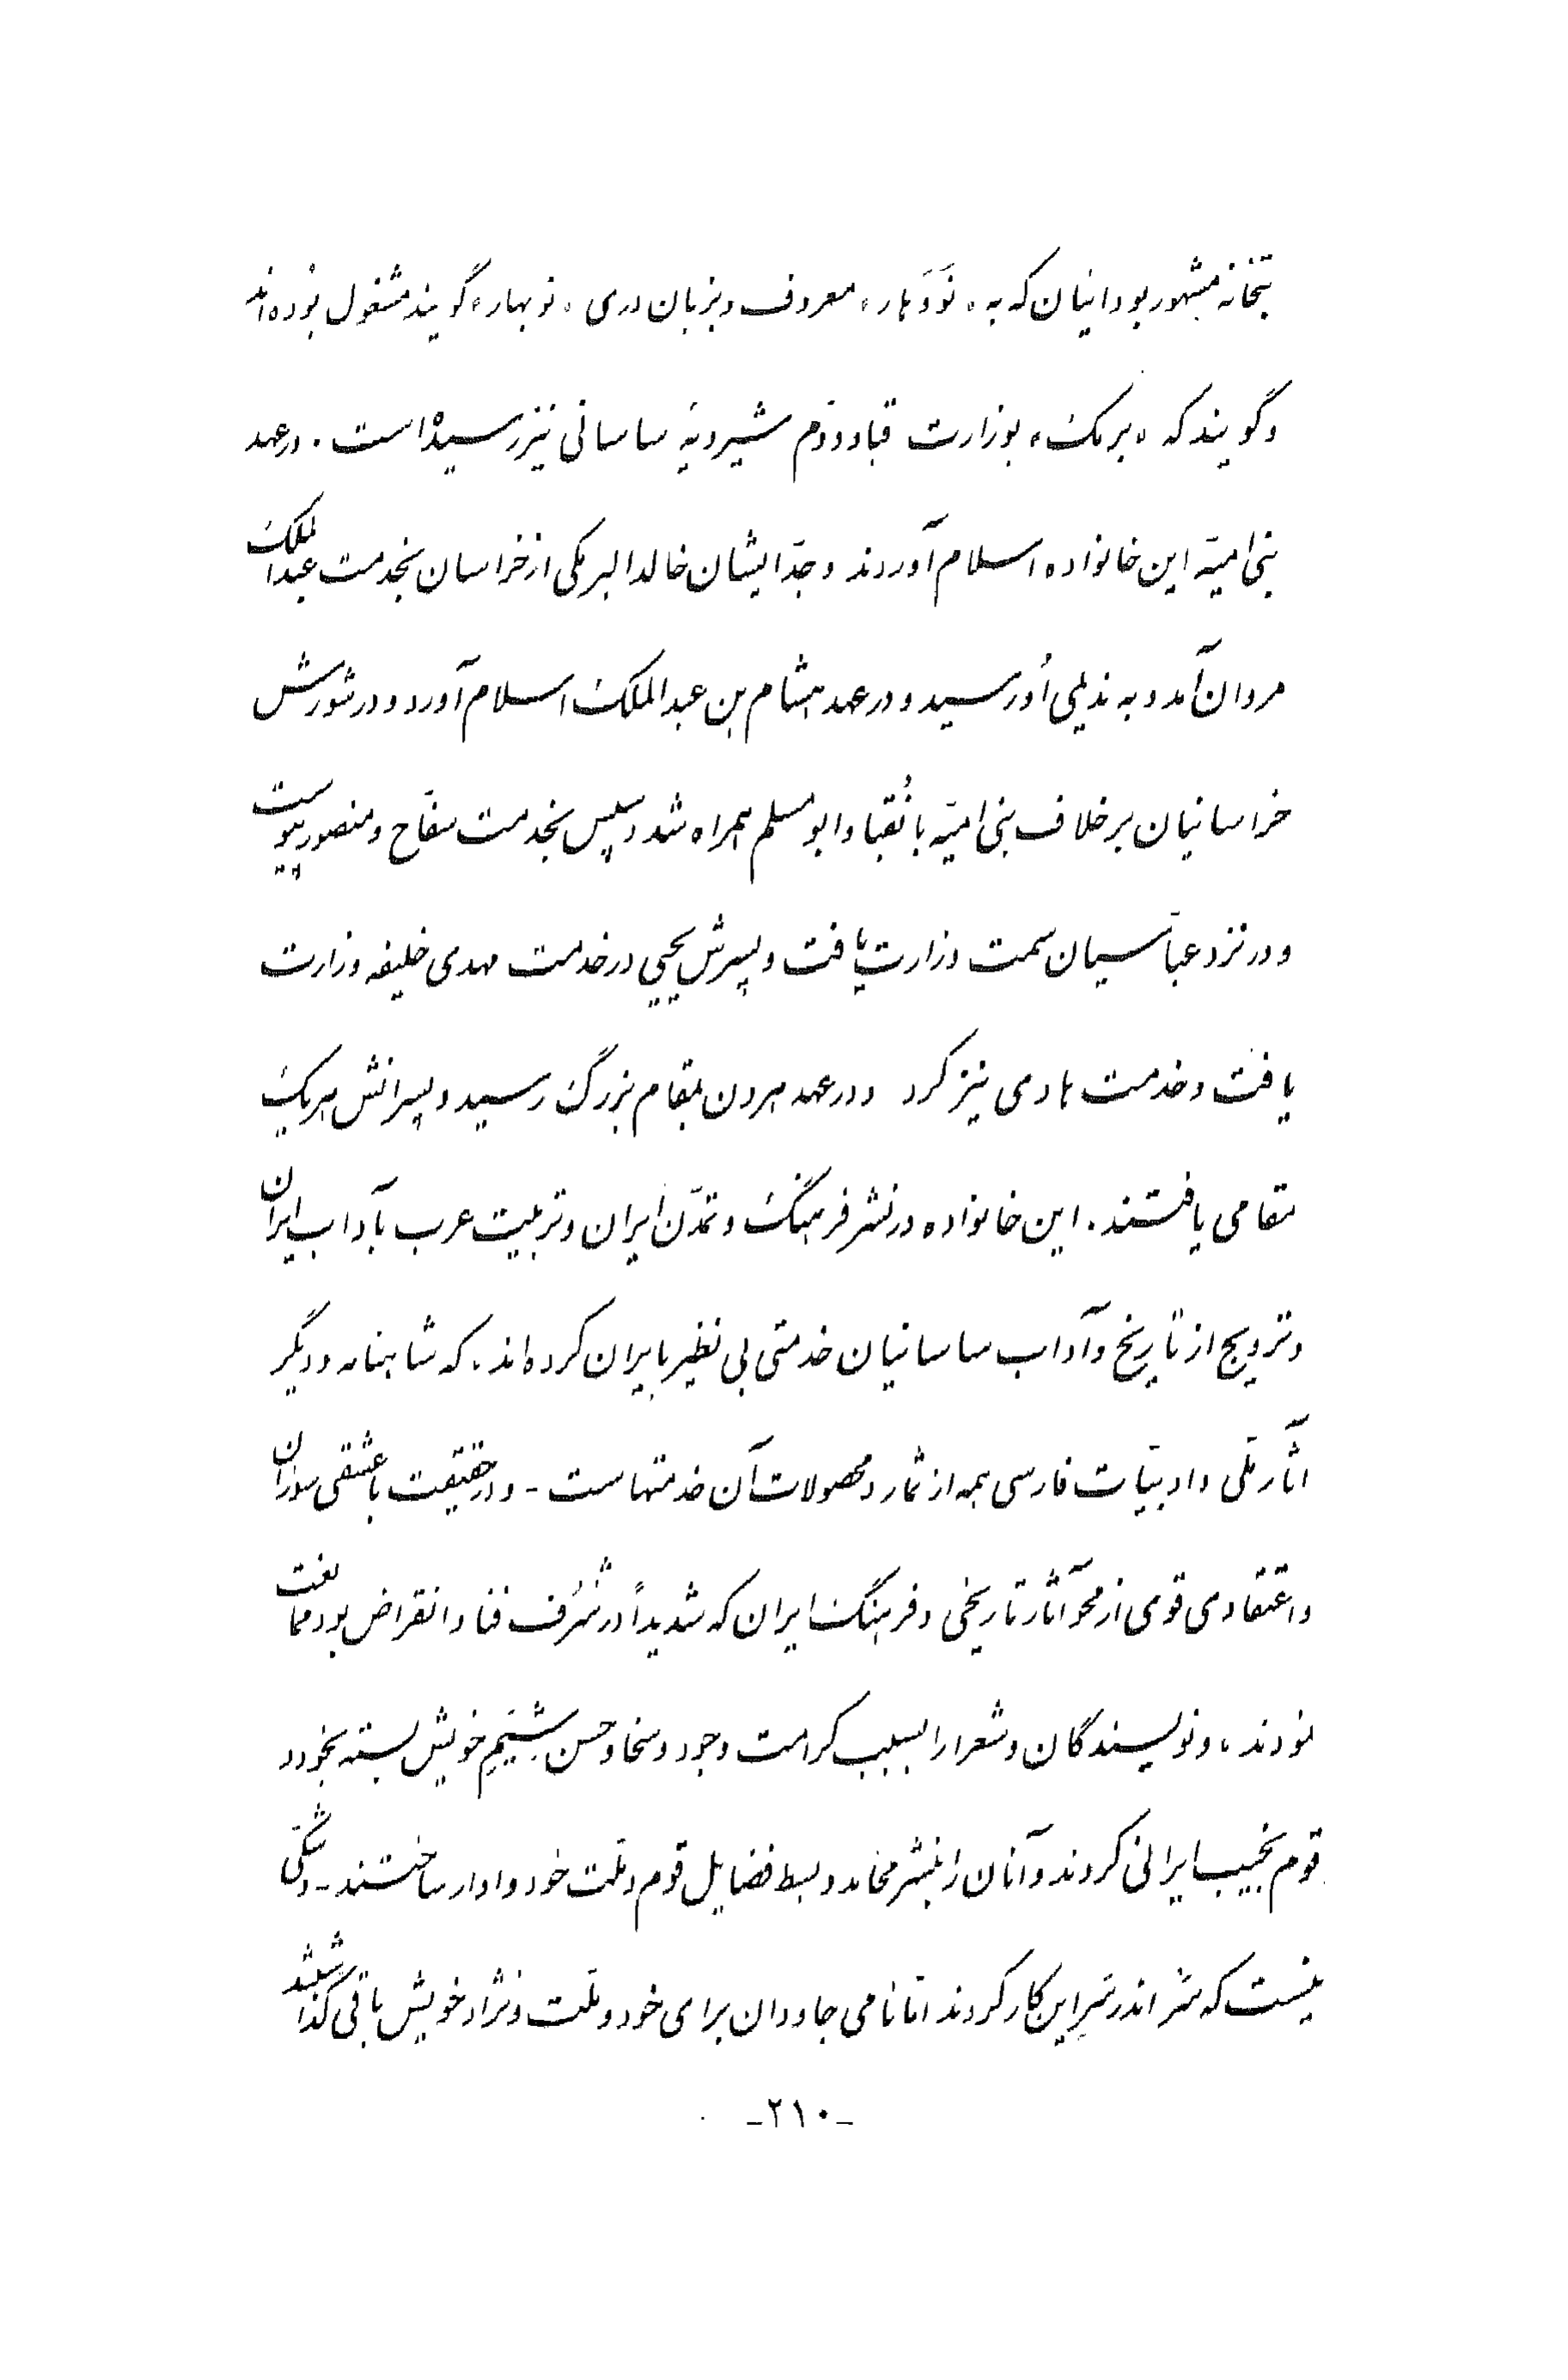 بتخانهٔ مشهور بودائیان که به «نَوَوَهار» معروف و بزبان دری «نوبهار» گویند مشغول بوده‌اند
و گویند که «برمک» بوزارت قباد دوّم شیرویهٔ ساسانی نیز رسیده است. در عهد
بنی امیّه این خانواده اسلام آوردند و جدّ ایشان خالد البرمکی از خراسان بخدمت عبدالملک
مروان آمد و به ندیمی اُو رسید و در عهد هشام بن عبدالملک اسلام آورد و در شورش
خراسانیان برخلاف بنی امیّه با نُقبا و ابومسلم همراه شد و سپس بخدمت سفّاح و منصور پیوست
و در نزد عباّسیان سمت وزارت یافت و پسرش یحیی در خدمت مهدی خلیفه وزارت
یافت و خدمت هادی نیز کرد و در عهد هرون بمقام بزرگ رسید و پسرانش هریک
مقامی یافتند. این خانواده در نشر فرهنگ و تمدّن ایران و تربیت عرب بآداب ایران
و ترویج از تاریخ و آداب ساسانیان خدمتی بی نظیر بایران کرده‌اند، که شاهنامه و دیگر
آثار ملّی و ادبیّات فارسی همه از ثمار و محصولات آن خدمتهاست - و در حقیقت با عشقی سوزان
و اعتقادی قوی از محو آثار تاریخی و فرهنگ ایران که شدیداً در شُرُف فنا و انقراض بود ممانعت
نمودند، و نویسندگان و شعرا را بسبب کرامت وجود و سخا و حسن شِیَمِ خویش بسته بخود و
قوم نجیب ایرانی کردند و آنان را بنشر محامد و بسط فضایل قوم و ملّت خود وادار ساختند - و شکّی
نیست که سَر اندر سَرِ این کار کردند امّا نامی جاودان برای خود و ملّت و نژاد خویش باقی گذاشتند
-۲۱۰-